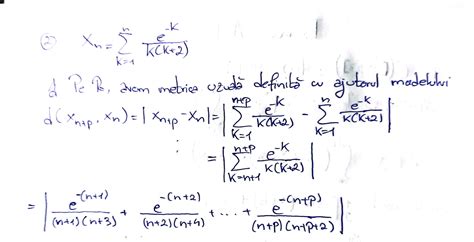 ② xₙ = ∑_{k=1}^{n} e^{-k} / k(k+2)
avem metrica uzuală definită cu ajutorul modelului
d(x_{n+p}, xₙ) = |x_{n+p} - xₙ| = |∑_{k=1}^{n+p} e^{-k} / k(k+2) - ∑_{k=1}^{n} e^{-k} / k(k+2)|
= |∑_{k=n+1}^{n+p} e^{-k} / k(k+2)|
= |e^{-(n+1)} / (n+1)(n+3) + e^{-(n+2)} / (n+2)(n+4) + ... + e^{-(n+p)} / (n+p)(n+p+2)|